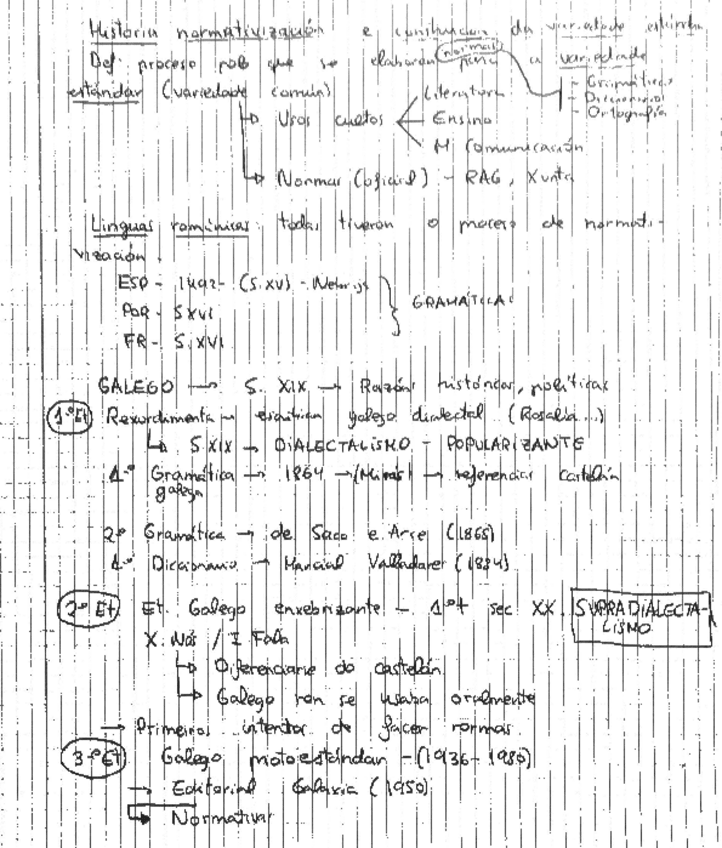 Historia normativización e construcción da variedade estándar
Def. proceso polo que se elaboran normas para a variedade
estándar (variedade común)
- Gramáticas
- Diccionarios
- Ortografía
→ Usos cultos
Literatura
Ensino
M Comunicación
→ Normas (oficial) - RAG, Xunta
Linguas románicas: todas tiveron o proceso de normati-
vización.
ESP - 1492 - (S. XV) - Nebrija
POR - S XVI
FR - S. XVI
GRAMÁTICAS
GALEGO → S. XIX → Razóns históricas, políticas
1ª Et Rexurdimento → escritura galego dialectal (Rosalía...)
↳ S. XIX → DIALECTALISMO - POPULARIZANTE
1ª Gramática → 1864 → (Mirás) → referencias castelán
galega
2ª Gramática → de Saco e Arce (1868)
1º Diccionario → Marcial Valladares (1884)
2ª Et Et. Galego enxebrizante - 1º t sec XX. SUPRADIALECTA-
LISMO
X. Nós / I Fala
→ Diferenciarse do castelán
→ Galego non se usaba oralmente
→ Primeiros intentos de facer normas
3ª Et Galego protoestándar - (1936-1980)
→ Editorial Galaxia (1950)
↳ Normativas